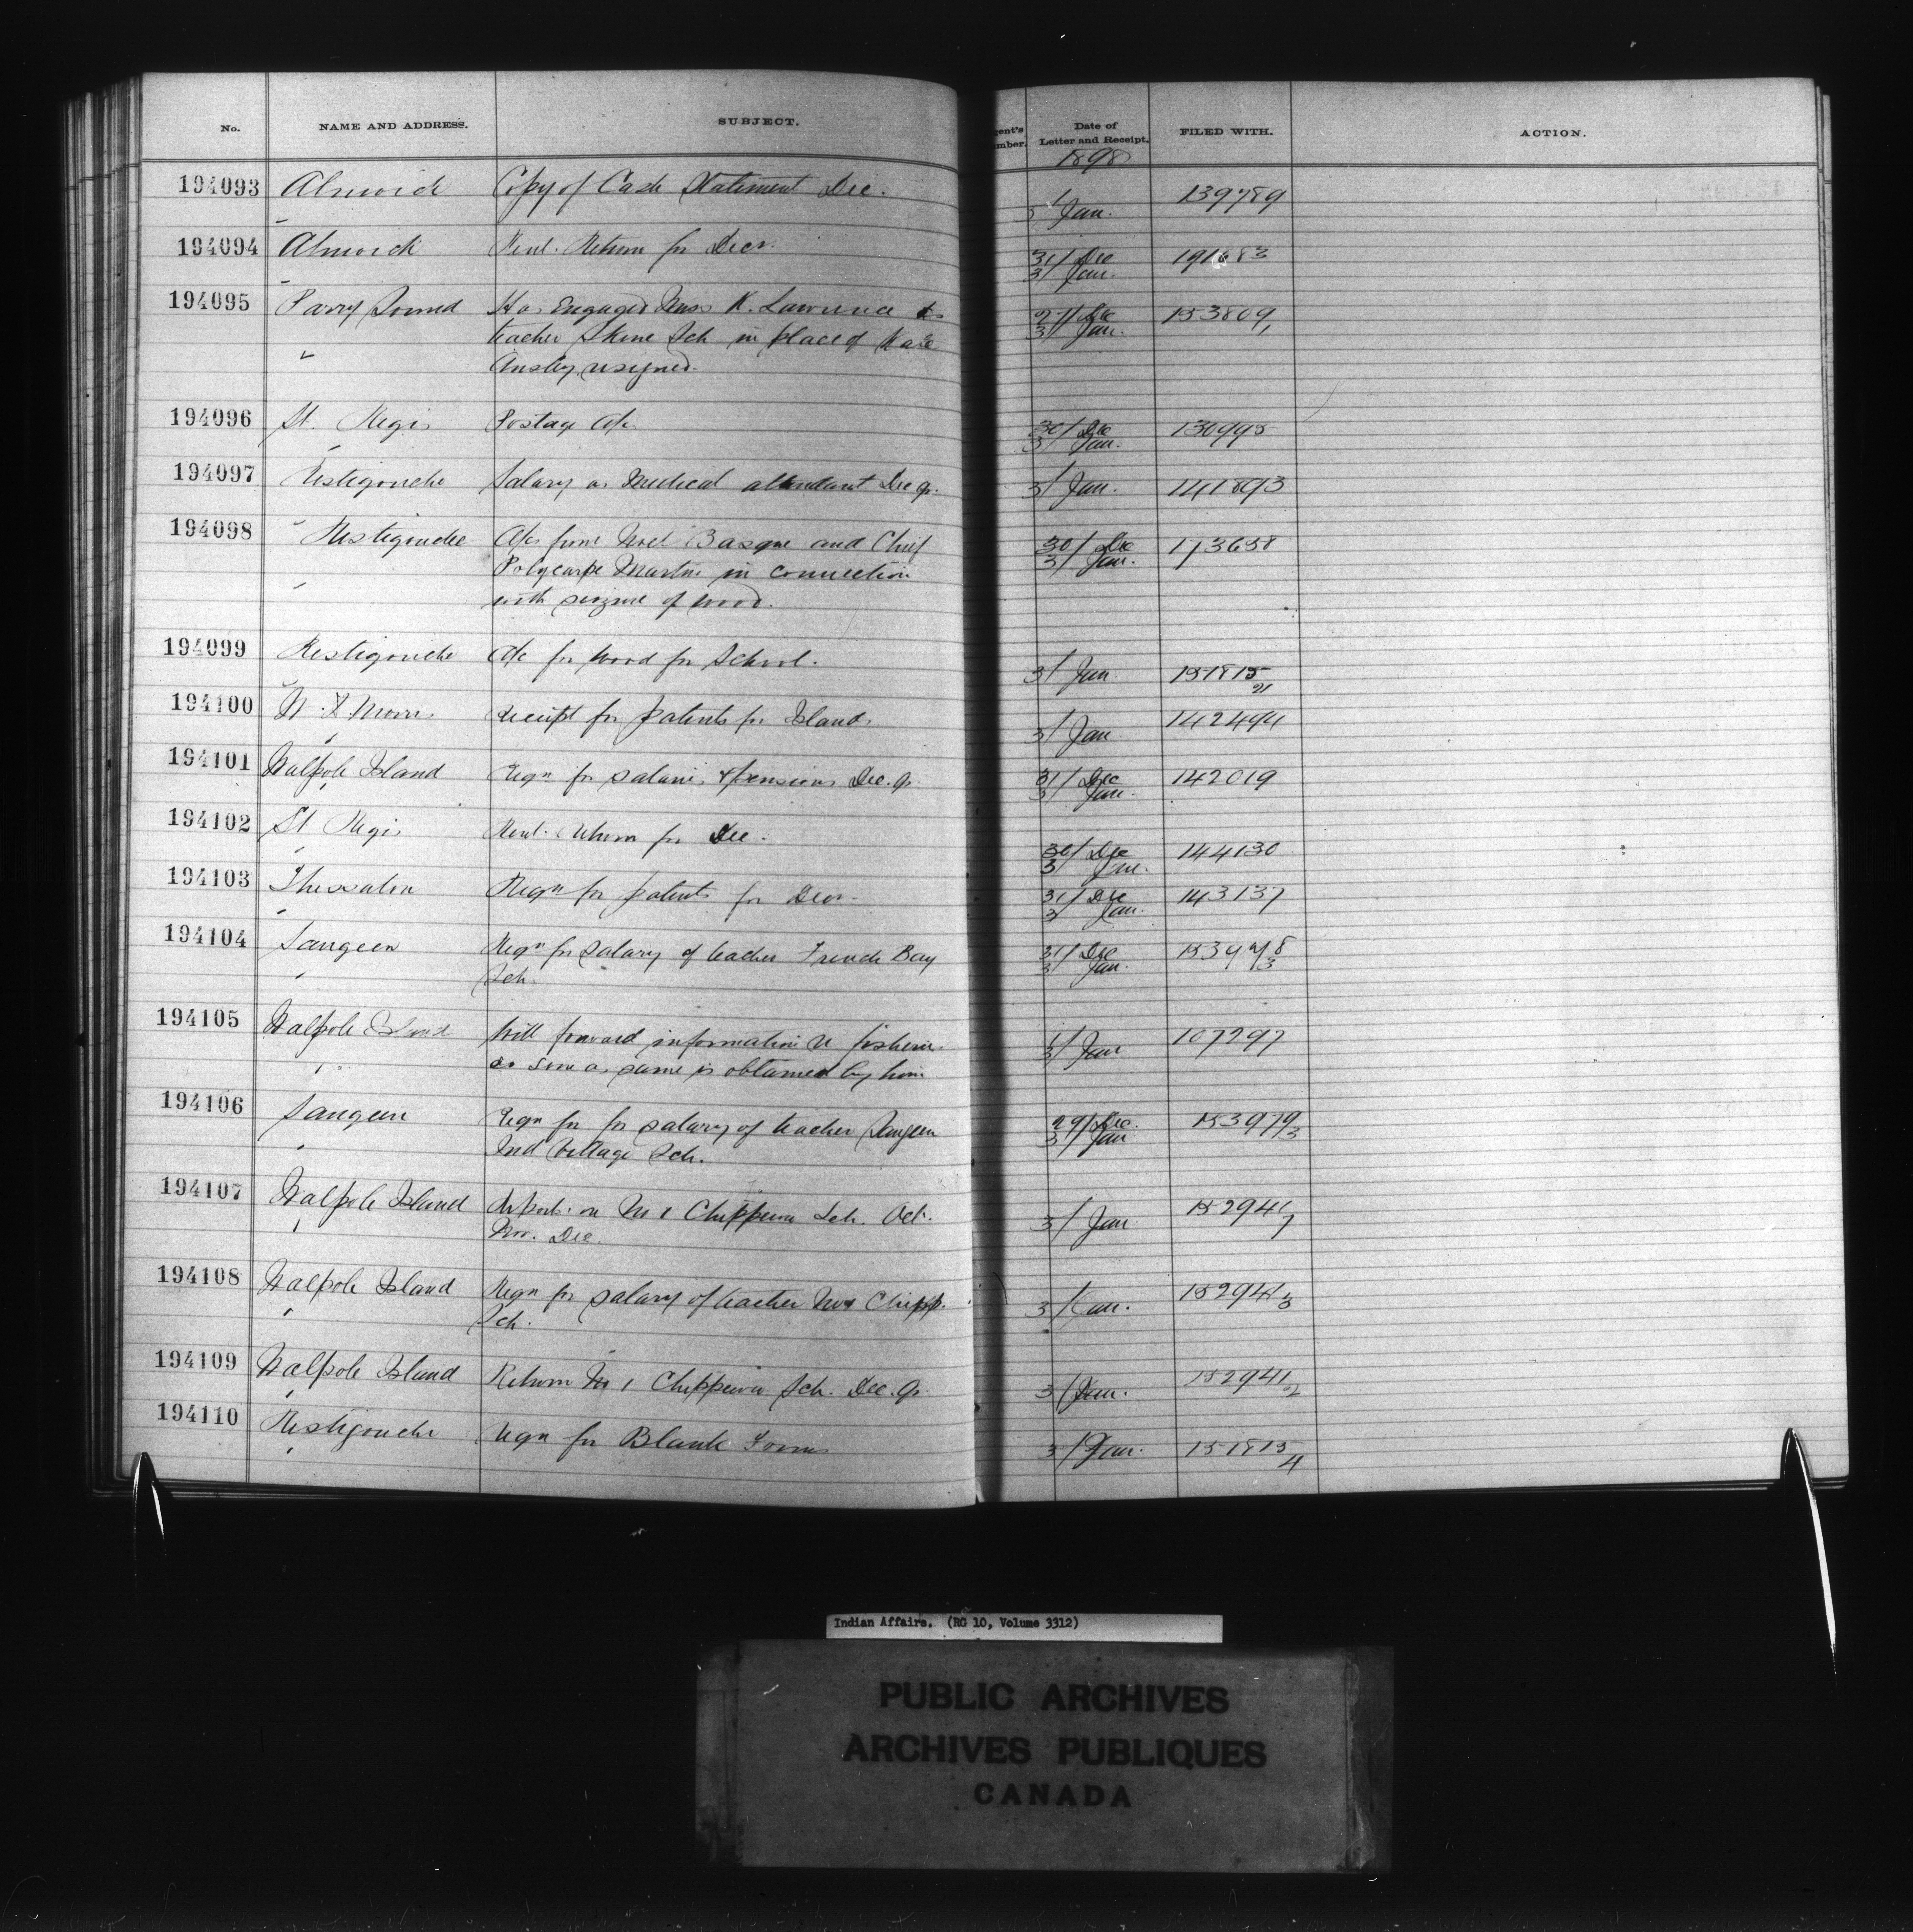 No. NAME AND ADDRESS. SUBJECT. gent's mber. Date of Letter and Receipt. FILED WITH. ACTION.
1898
194093 Alnwick Copy of Cash Statement Dec. 3/ Jan. 139789
194094 Alnwick Rent Return for Decr. 31/ Dec 191683
3/ Jan.
194095 Parry Sound Has Engaged Miss K. Lawrence as 27/ Dec 153809
teacher Skene Sch in place of Kate 3/ Jan. 1
Ansley resigned.
194096 St. Regis Postage A/c 30/ Dec 130995
3/ Jan.
194097 Restigouche Salary as Medical attendant Dec qr. 3/ Jan. 141893
194098 Restigouche A/cs from Noel Basque and Chief 30/ Dec 173658
Polycarpe Martin in connection 3/ Jan.
with seizure of wood.
194099 Restigouche A/c for Wood for School. 3/ Jan 151815
21
194100 receipt for patents for Islands 3/ Jan 142494
194101 Walpole Island Reqn for salaries & pensions Dec. qr 31/ Dec 142019
3/ Jan.
194102 St Regis Rent Return for Dec. 30/ Dec 144130
3/ Jan.
194103 Thessalon Reqn for patents for Decr. 31/ Dec 143137
3/ Jan.
194104 Saugeen Reqn for salary of teacher French Bay 31/ Dec
Sch. 3/ Jan.
194105 Walpole Island Will forward information re fisheries 3/ Jan 107297
as soon as same is obtained by him
194106 Saugeen Reqn for for salary of teacher Saugeen 29/ Dec. 153979
Ind Village Sch. 3/ Jan 3
194107 Walpole Island Report on No 1 Chippewa Sch. Oct. 3/ Jan 152941
Nov. Dec. 7
194108 Walpole Island Reqn for salary of teacher No 1 Chipp. 3/ Jan. 152941
Sch. 3
194109 Walpole Island Return No 1 Chippewa Sch. Dec. Qr. 3/ Jan. 152941
2
194110 Restigouche reqn for Blank Forms 3/ Jan. 151815
4
Indian Affairs. (RG 10, Volume 3312)
PUBLIC ARCHIVES
ARCHIVES PUBLIQUES
CANADA